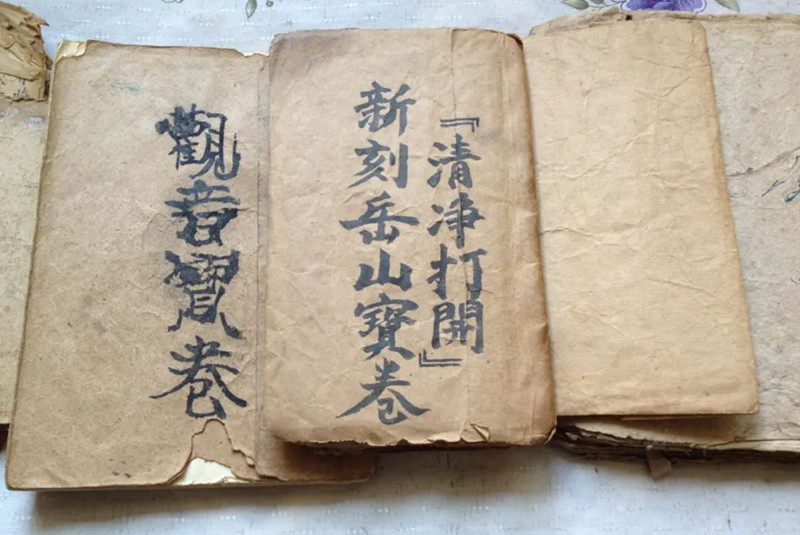 『清净打開』
新刻岳山寶卷
觀音寶卷